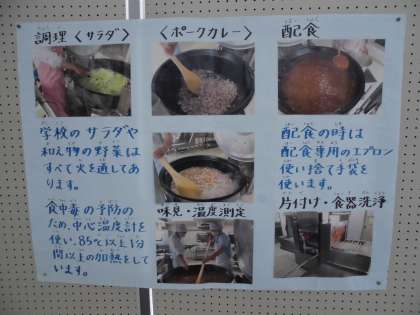 調理〈サラダ〉
学校のサラダや
和え物の野菜は
すべて火を通してあ
ります。
食中毒の予防の
ため、中心温度計を
使い、85℃以上1分
間以上の加熱をして
います。
〈ポークカレー〉
味見・温度測定
配食
配食の時は
配食専用のエプロン
使い捨て手袋を
使います。
片付け・食器洗浄